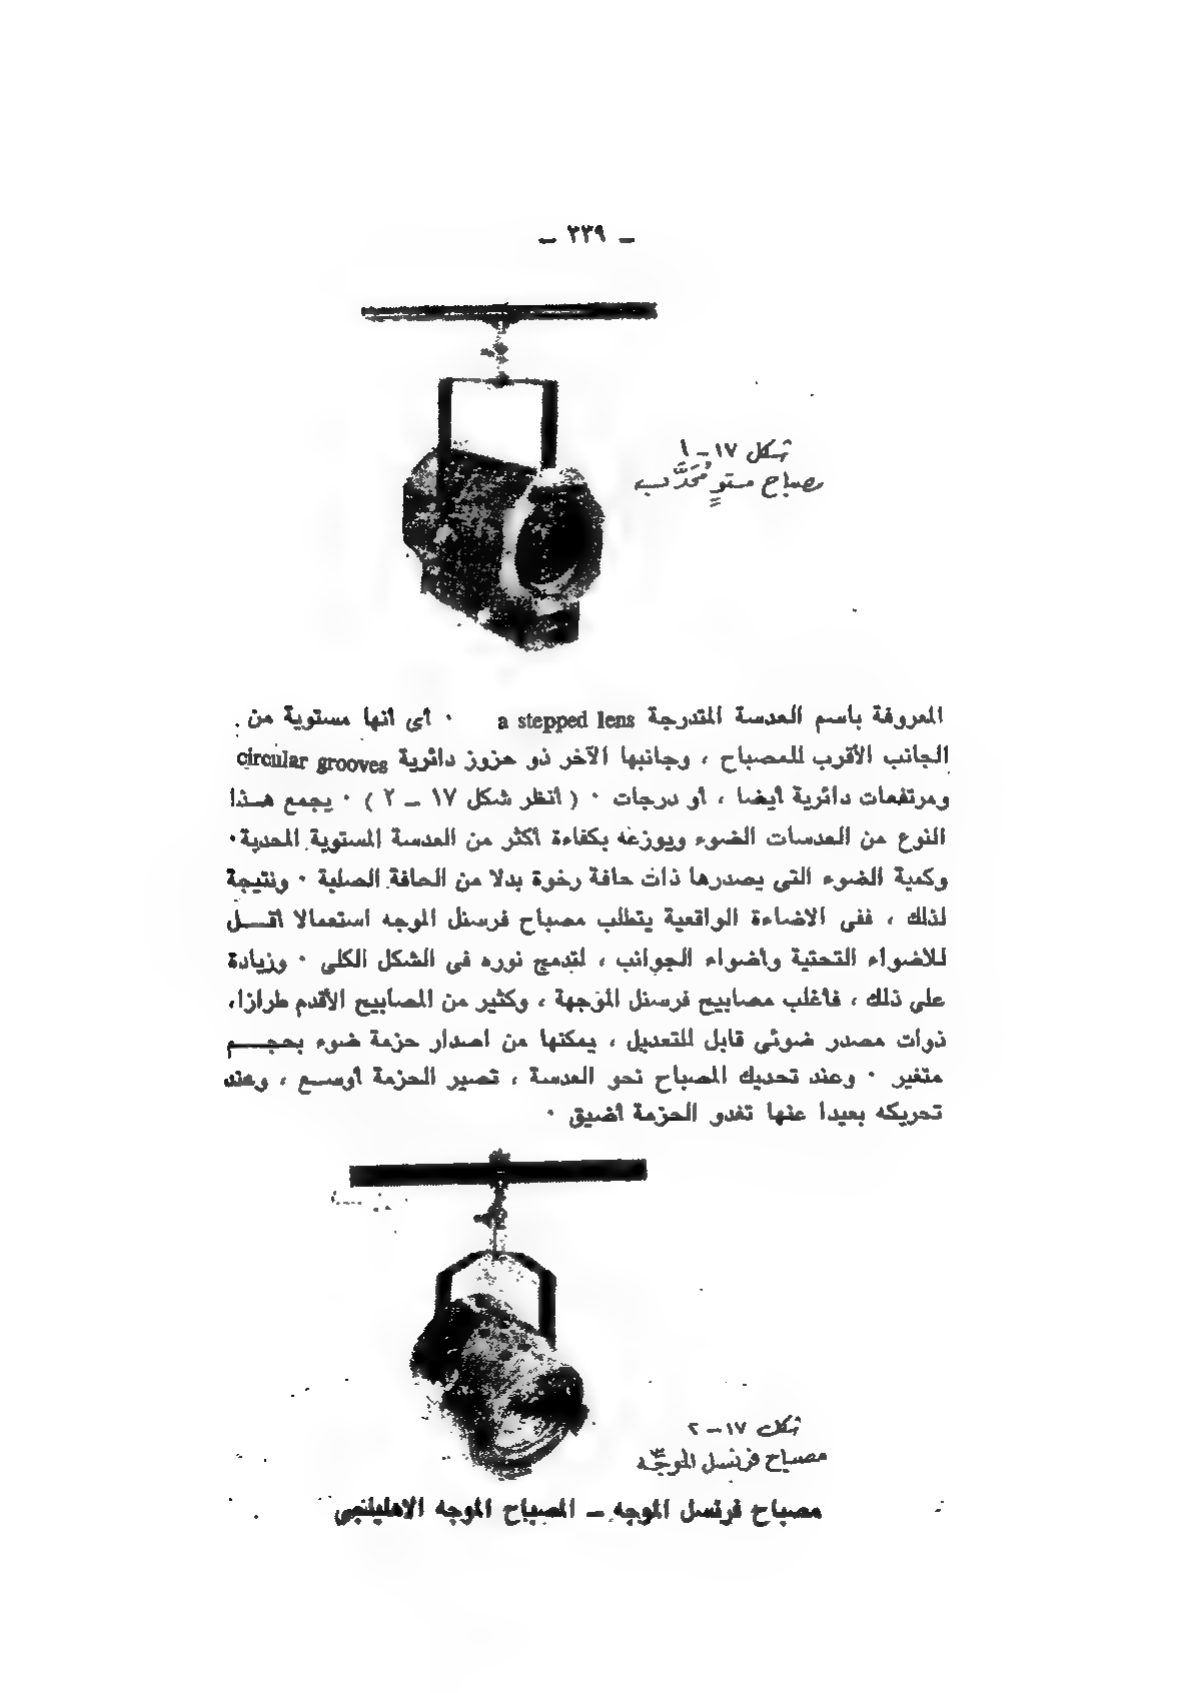 ـ ٣٣٩ ـ
شكل ١٧ - ١
مصباح مستوٍ مُحَدَّب
المعروفة باسم العدسة المتدرجة a stepped lens ٠ أى أنها مستوية من
الجانب الأقرب للمصباح ، وجانبها الآخر ذو حزوز دائرية circular grooves
ومرتفعات دائرية أيضا ، أو درجات ٠ ( أنظر شكل ١٧ ـ ٢ ) ٠ يجمع هـذا
النوع من العدسات الضوء ويوزعه بكفاءة أكثر من العدسة المستوية المحدبة٠
وكمية الضوء التى يصدرها ذات حافة رخوة بدلا من الحافة الصلبة ٠ ونتيجة
لذلك ، ففى الاضاءة الواقعية يتطلب مصباح فرسنل الموجه استعمالا أقـــل
للأضواء التحتية وأضواء الجوانب ، لتدمج نوره فى الشكل الكلى ٠ وزيادة
على ذلك ، فأغلب مصابيح فرسنل الموجهة ، وكثير من المصابيح الأقدم طرازا،
ذوات مصدر ضوئى قابل للتعديل ، يمكنها من اصدار حزمة ضوء بحجـــم
متغير ٠ وعند تحديك المصباح نحو العدسة ، تصير الحزمة أوسـع ، وعند
تحريكه بعيدا عنها تغدو الحزمة أضيق ٠
شكل ١٧ - ٢
مصباح فرنسل الموجّه
مصباح فرنسل الموجه ـ المصباح الموجه الاهليلنجى